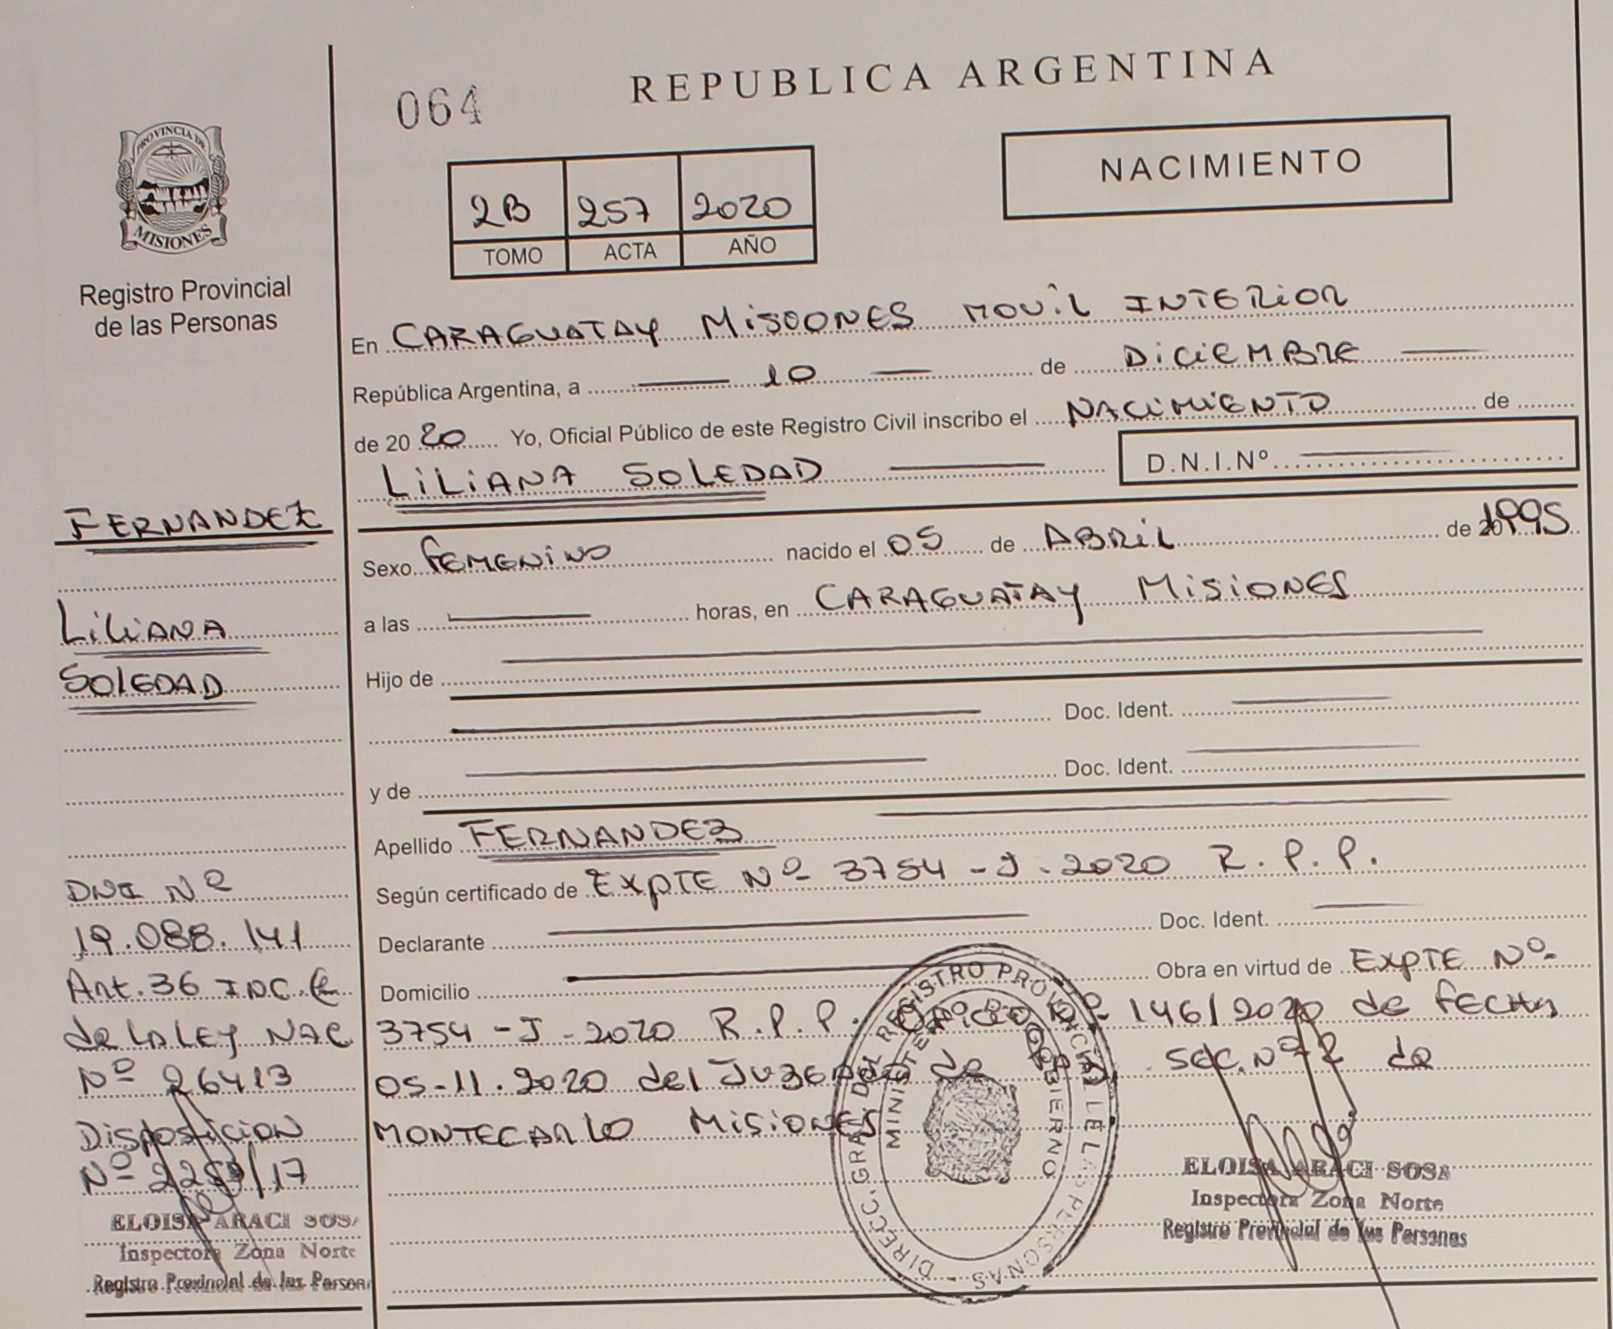 064
REPUBLICA ARGENTINA
PROVINCIA DE
MISIONES
Registro Provincial
de las Personas
2B 257 2020
TOMO ACTA AÑO
NACIMIENTO
En CARAGUATAY MISOONES MOVIL INTERIOR
República Argentina, a 10 de DICIEMBRE
de 20 20 Yo, Oficial Público de este Registro Civil inscribo el NACIMIENTO de
LILIANA SOLEDAD D.N.I.Nº
Sexo FEMENINO nacido el 05 de ABRIL de 1995
a las horas, en CARAGUATAY MISIONES
Hijo de
Doc. Ident.
y de Doc. Ident.
Apellido FERNANDEZ
Según certificado de EXPTE Nº 3754 - J - 2020 R. P. P.
Declarante Doc. Ident.
Domicilio Obra en virtud de EXPTE Nº
3754 - J - 2020 R. P. P. 146/2020 de FECHA
05-11-2020 del JUZGADO de SEC. Nº 2 de
MONTECARLO MISIONES
FERNANDEZ
LILIANA
SOLEDAD
DNI Nº
19.088.141
Art. 36 INC. C
de LA LEY NAC
Nº 26413
DISPOSICION
Nº /17
ELOISA ARACI SOSA
Inspectora Zona Norte
Registro Provincial de las Person
DIRECC. GRAL. DEL REGISTRO PROVINCIAL DE LAS PERSONAS
MINISTERIO DE GOBIERNO
ELOISA ARACI SOSA
Inspectora Zona Norte
Registro Provincial de las Personas